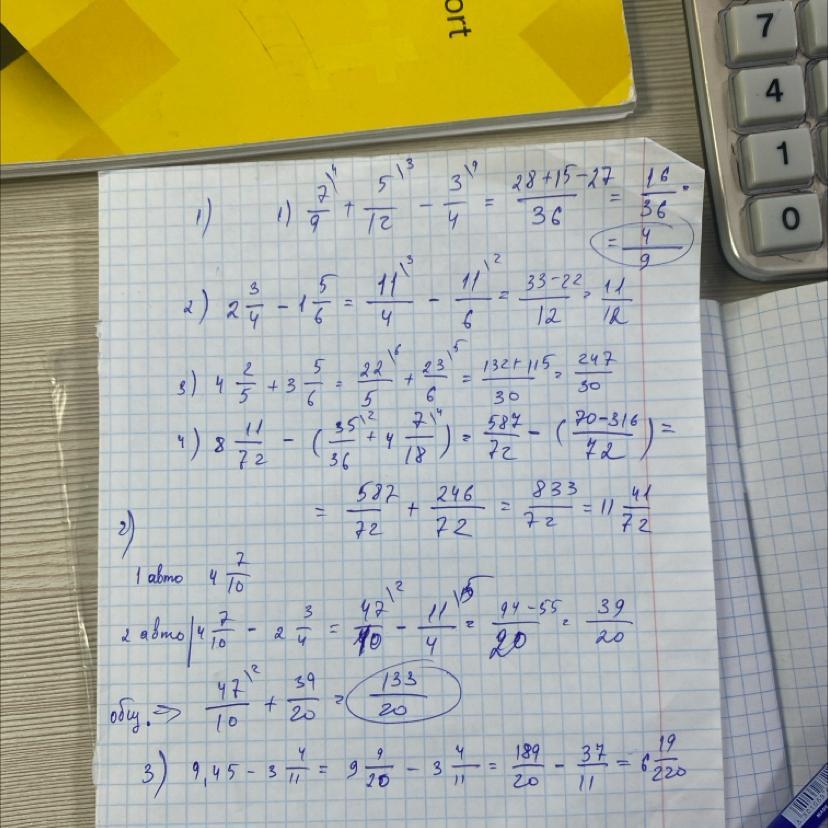 ort
7
4
1
0
1) 1) 7/9 \4 + 5/12 \3 - 3/4 \9 = (28+15-27)/36 = 16/36 =
= 4/9
2) 2 3/4 - 1 5/6 = 11/4 \3 - 11/6 \2 = (33-22)/12 = 11/12
3) 4 2/5 + 3 5/6 = 22/5 \6 + 23/6 \5 = (132+115)/30 = 247/30
4) 8 11/72 - (35/36 \2 + 4 7/18 \4) = 587/72 - ((70-316)/72) =
= 587/72 + 246/72 = 833/72 = 11 41/72
2)
1 авто 4 7/10
2 авто | 4 7/10 - 2 3/4 = 47/10 \2 - 11/4 \5 = (94-55)/20 = 39/20
общ. => 47/10 \2 + 39/20 = 133/20
3) 9,45 - 3 4/11 = 9 9/20 - 3 4/11 = 189/20 - 37/11 = 6 19/220